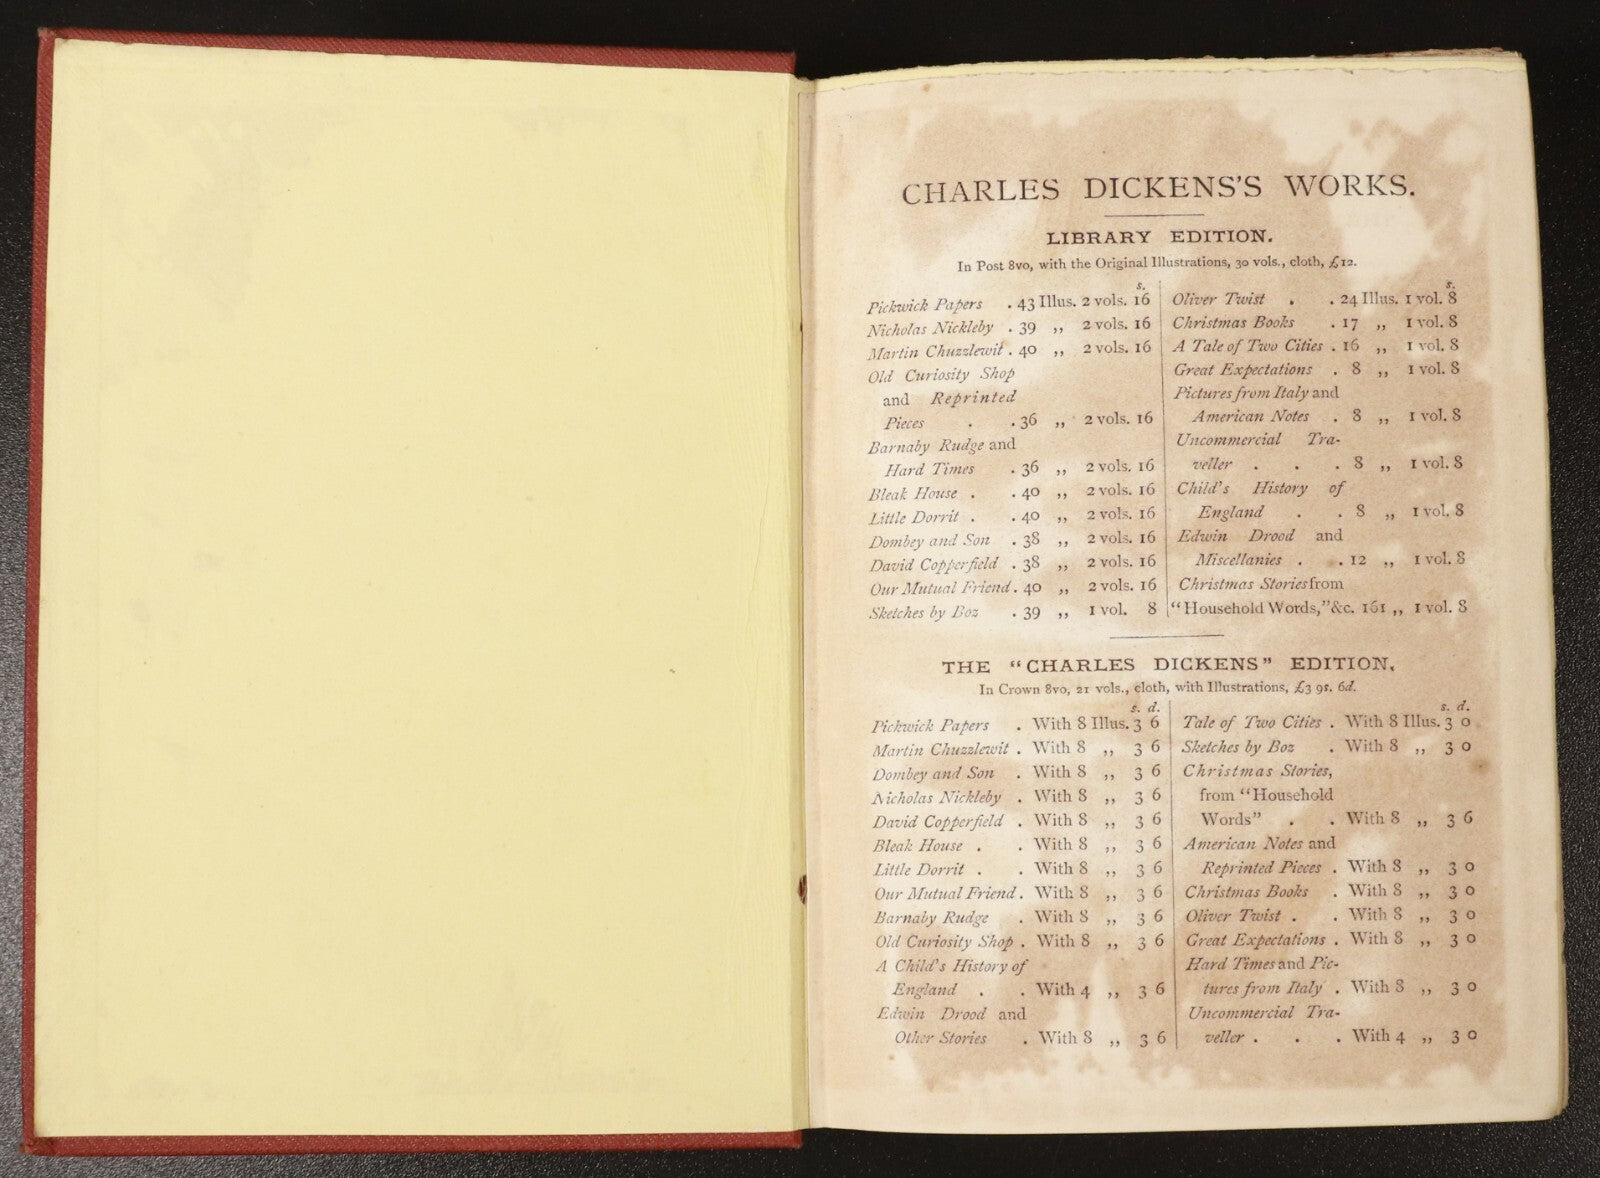 CHARLES DICKENS'S WORKS.
LIBRARY EDITION.
In Post 8vo, with the Original Illustrations, 30 vols., cloth, £12.
s.
Pickwick Papers . 43 Illus. 2 vols. 16
Nicholas Nickleby . 39 ,, 2 vols. 16
Martin Chuzzlewit . 40 ,, 2 vols. 16
Old Curiosity Shop
and Reprinted
Pieces . . 36 ,, 2 vols. 16
Barnaby Rudge and
Hard Times . 36 ,, 2 vols. 16
Bleak House . . 40 ,, 2 vols. 16
Little Dorrit . . 40 ,, 2 vols. 16
Dombey and Son . 38 ,, 2 vols. 16
David Copperfield . 38 ,, 2 vols. 16
Our Mutual Friend . 40 ,, 2 vols. 16
Sketches by Boz . 39 ,, 1 vol. 8
s.
Oliver Twist . . 24 Illus. 1 vol. 8
Christmas Books . 17 ,, 1 vol. 8
A Tale of Two Cities . 16 ,, 1 vol. 8
Great Expectations . 8 ,, 1 vol. 8
Pictures from Italy and
American Notes . 8 ,, 1 vol. 8
Uncommercial Tra-
veller . . . 8 ,, 1 vol. 8
Child's History of
England . . 8 ,, 1 vol. 8
Edwin Drood and
Miscellanies . . 12 ,, 1 vol. 8
Christmas Stories from
"Household Words," &c. 161 ,, 1 vol. 8
THE "CHARLES DICKENS" EDITION.
In Crown 8vo, 21 vols., cloth, with Illustrations, £3 9s. 6d.
s. d.
Pickwick Papers . With 8 Illus. 3 6
Martin Chuzzlewit . With 8 ,, 3 6
Dombey and Son . With 8 ,, 3 6
Nicholas Nickleby . With 8 ,, 3 6
David Copperfield . With 8 ,, 3 6
Bleak House . . With 8 ,, 3 6
Little Dorrit . . With 8 ,, 3 6
Our Mutual Friend . With 8 ,, 3 6
Barnaby Rudge . With 8 ,, 3 6
Old Curiosity Shop . With 8 ,, 3 6
A Child's History of
England . . With 4 ,, 3 6
Edwin Drood and
Other Stories . With 8 ,, 3 6
s. d.
Tale of Two Cities . With 8 Illus. 3 0
Sketches by Boz . With 8 ,, 3 0
Christmas Stories,
from "Household
Words" . . With 8 ,, 3 6
American Notes and
Reprinted Pieces . With 8 ,, 3 0
Christmas Books . With 8 ,, 3 0
Oliver Twist . . With 8 ,, 3 0
Great Expectations . With 8 ,, 3 0
Hard Times and Pic-
tures from Italy . With 8 ,, 3 0
Uncommercial Tra-
veller . . . With 4 ,, 3 0